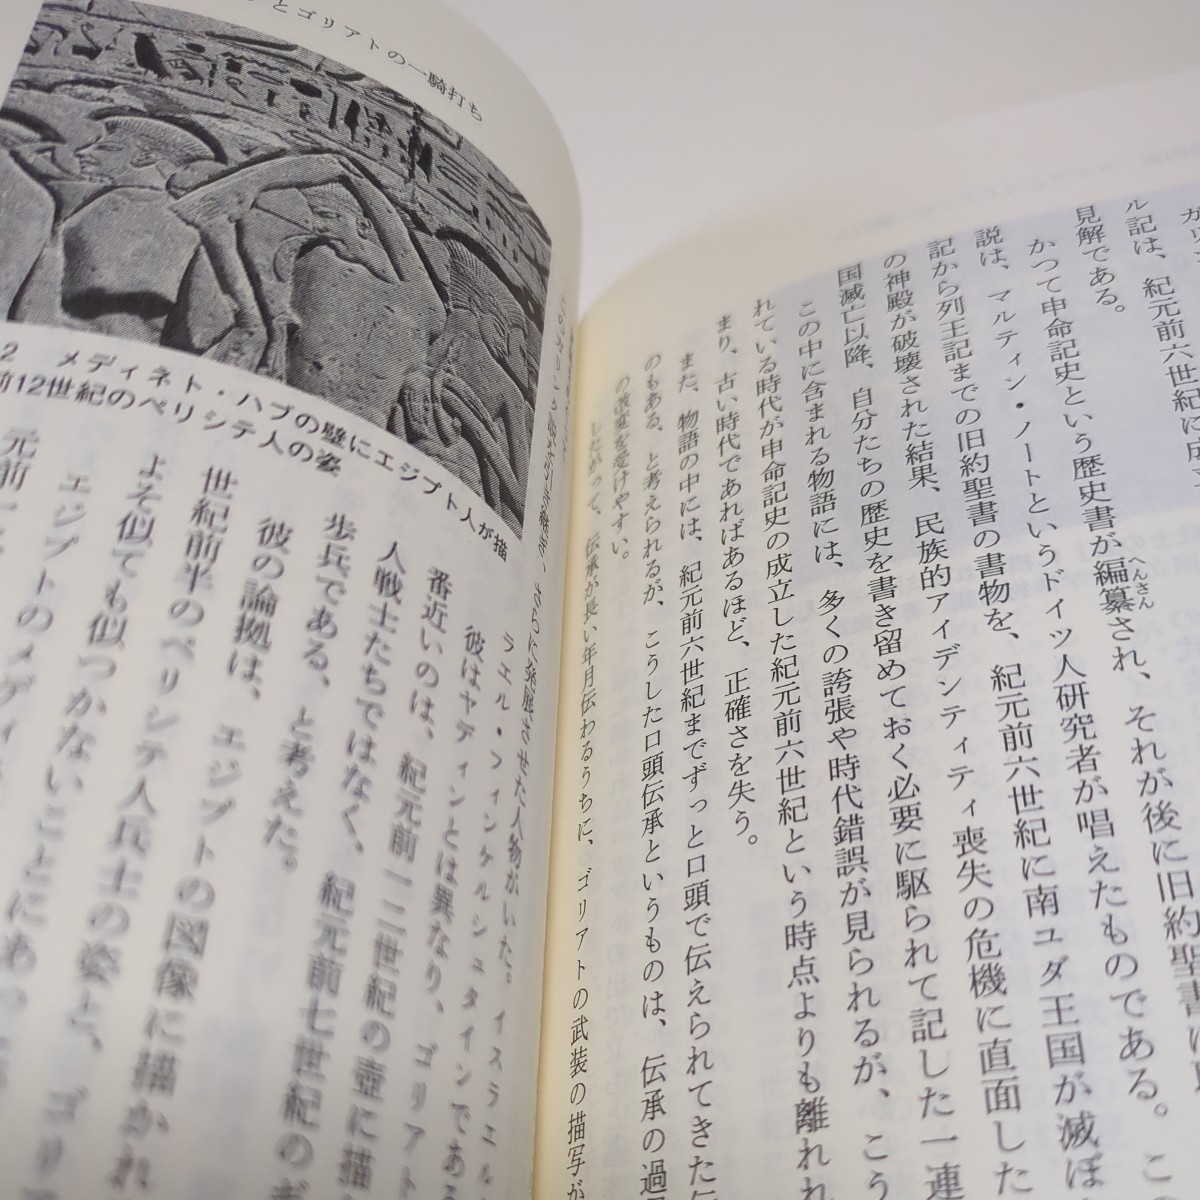 ル記は、紀元前六世紀に成
見解である。
かつて申命記史という歴史書が編纂され、それが後に旧約聖書に
へんさん
説は、マルティン・ノートというドイツ人研究者が唱えたものである。こ
記から列王記までの旧約聖書の書物を、紀元前六世紀に南ユダ王国が滅ぼ
の神殿が破壊された結果、民族的アイデンティティ喪失の危機に直面した
国滅亡以降、自分たちの歴史を書き留めておく必要に駆られて記した一連
この中に含まれる物語には、多くの誇張や時代錯誤が見られるが、こう
れている時代が申命記史の成立した紀元前六世紀という時点よりも離れれ
まり、古い時代であればあるほど、正確さを失う。
また、物語の中には、紀元前六世紀までずっと口頭で伝えられてきた伝
のもある、と考えられるが、こうした口頭伝承というものは、伝承の過
の改変を受けやすい。
したがって、伝承が長い年月伝わるうちに、ゴリアトの武装の描写が
とゴリアトの一騎打ち
2 メディネト・ハブの壁にエジプト人が描
前12世紀のペリシテ人の姿
さらに発展させた人物がいた。イスラエル
ラエル・フィンケルシュタインである
彼はヤディンとは異なり、ゴリアト
番近いのは、紀元前一二世紀の壺に描
人戦士たちではなく、紀元前七世紀のギ
歩兵である、と考えた。
彼の論拠は、エジプトの図像に描かれ
世紀前半のペリシテ人兵士の姿と、ゴリ
よそ似ても似つかないことにあっ
エジプトのメディ
元前一